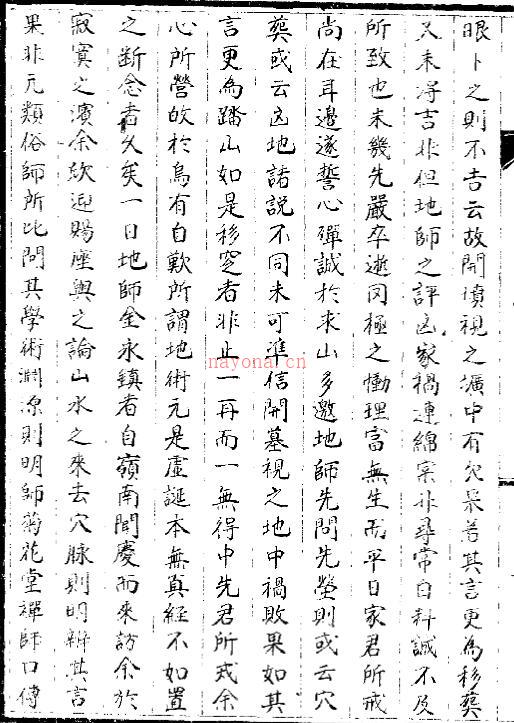 眼卜之則不吉云故開墳視之壙中有欠果若其言更為移葬
又未得吉非但地師之評凶家禍連綿寔非尋常自料誠不及
所致也未幾先嚴卒遊罔極之慟理當無生而平日家君所戒
尚在耳邊遂誓心殫誠於求山多邀地師先問先塋則或云穴
葬或云凶地諸說不同未可準信開墓視之地中禍敗果如其
言更為踏山如是移窆者非止一再而一無得中先君所戒余
心所營故於烏有自歎所謂地術元是虛誕本無真経不如置
之断念者久矣一日地師金永鎮者自嶺南聞慶而來訪余於
寂寞之濱余欣迎賜座與之論山水之來去穴脉則明辨其言
果非凡類俗師所比問其學術淵源則明師菊花堂禪師口傳
nayona.cn